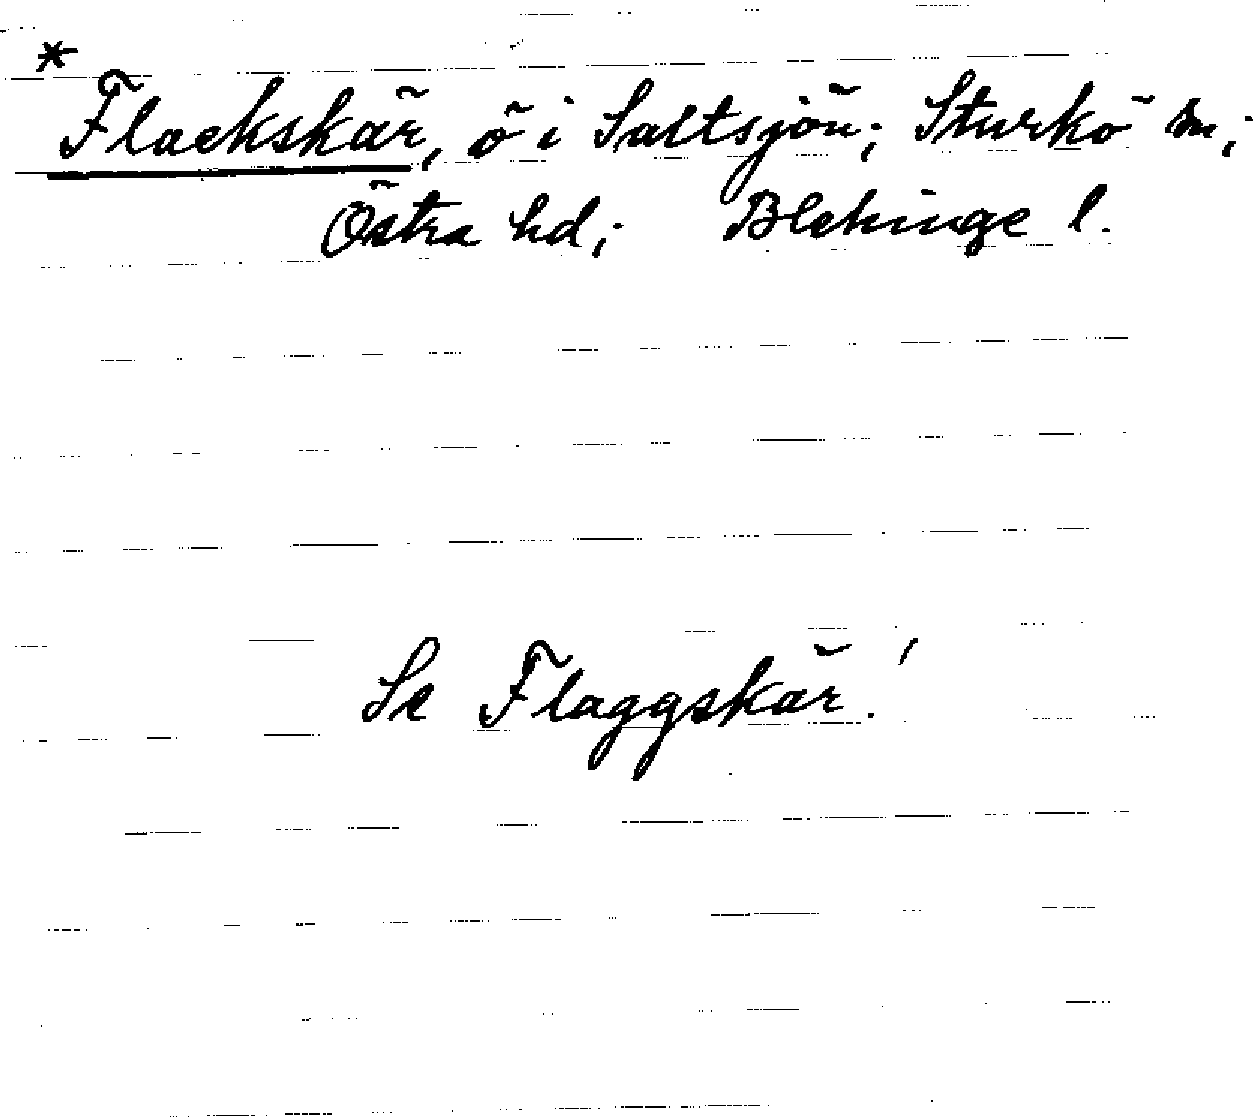 * Flackskär, ö i Saltsjön; Sturkö sn;
Östra hd; Blekinge l.
Se Flaggskär!